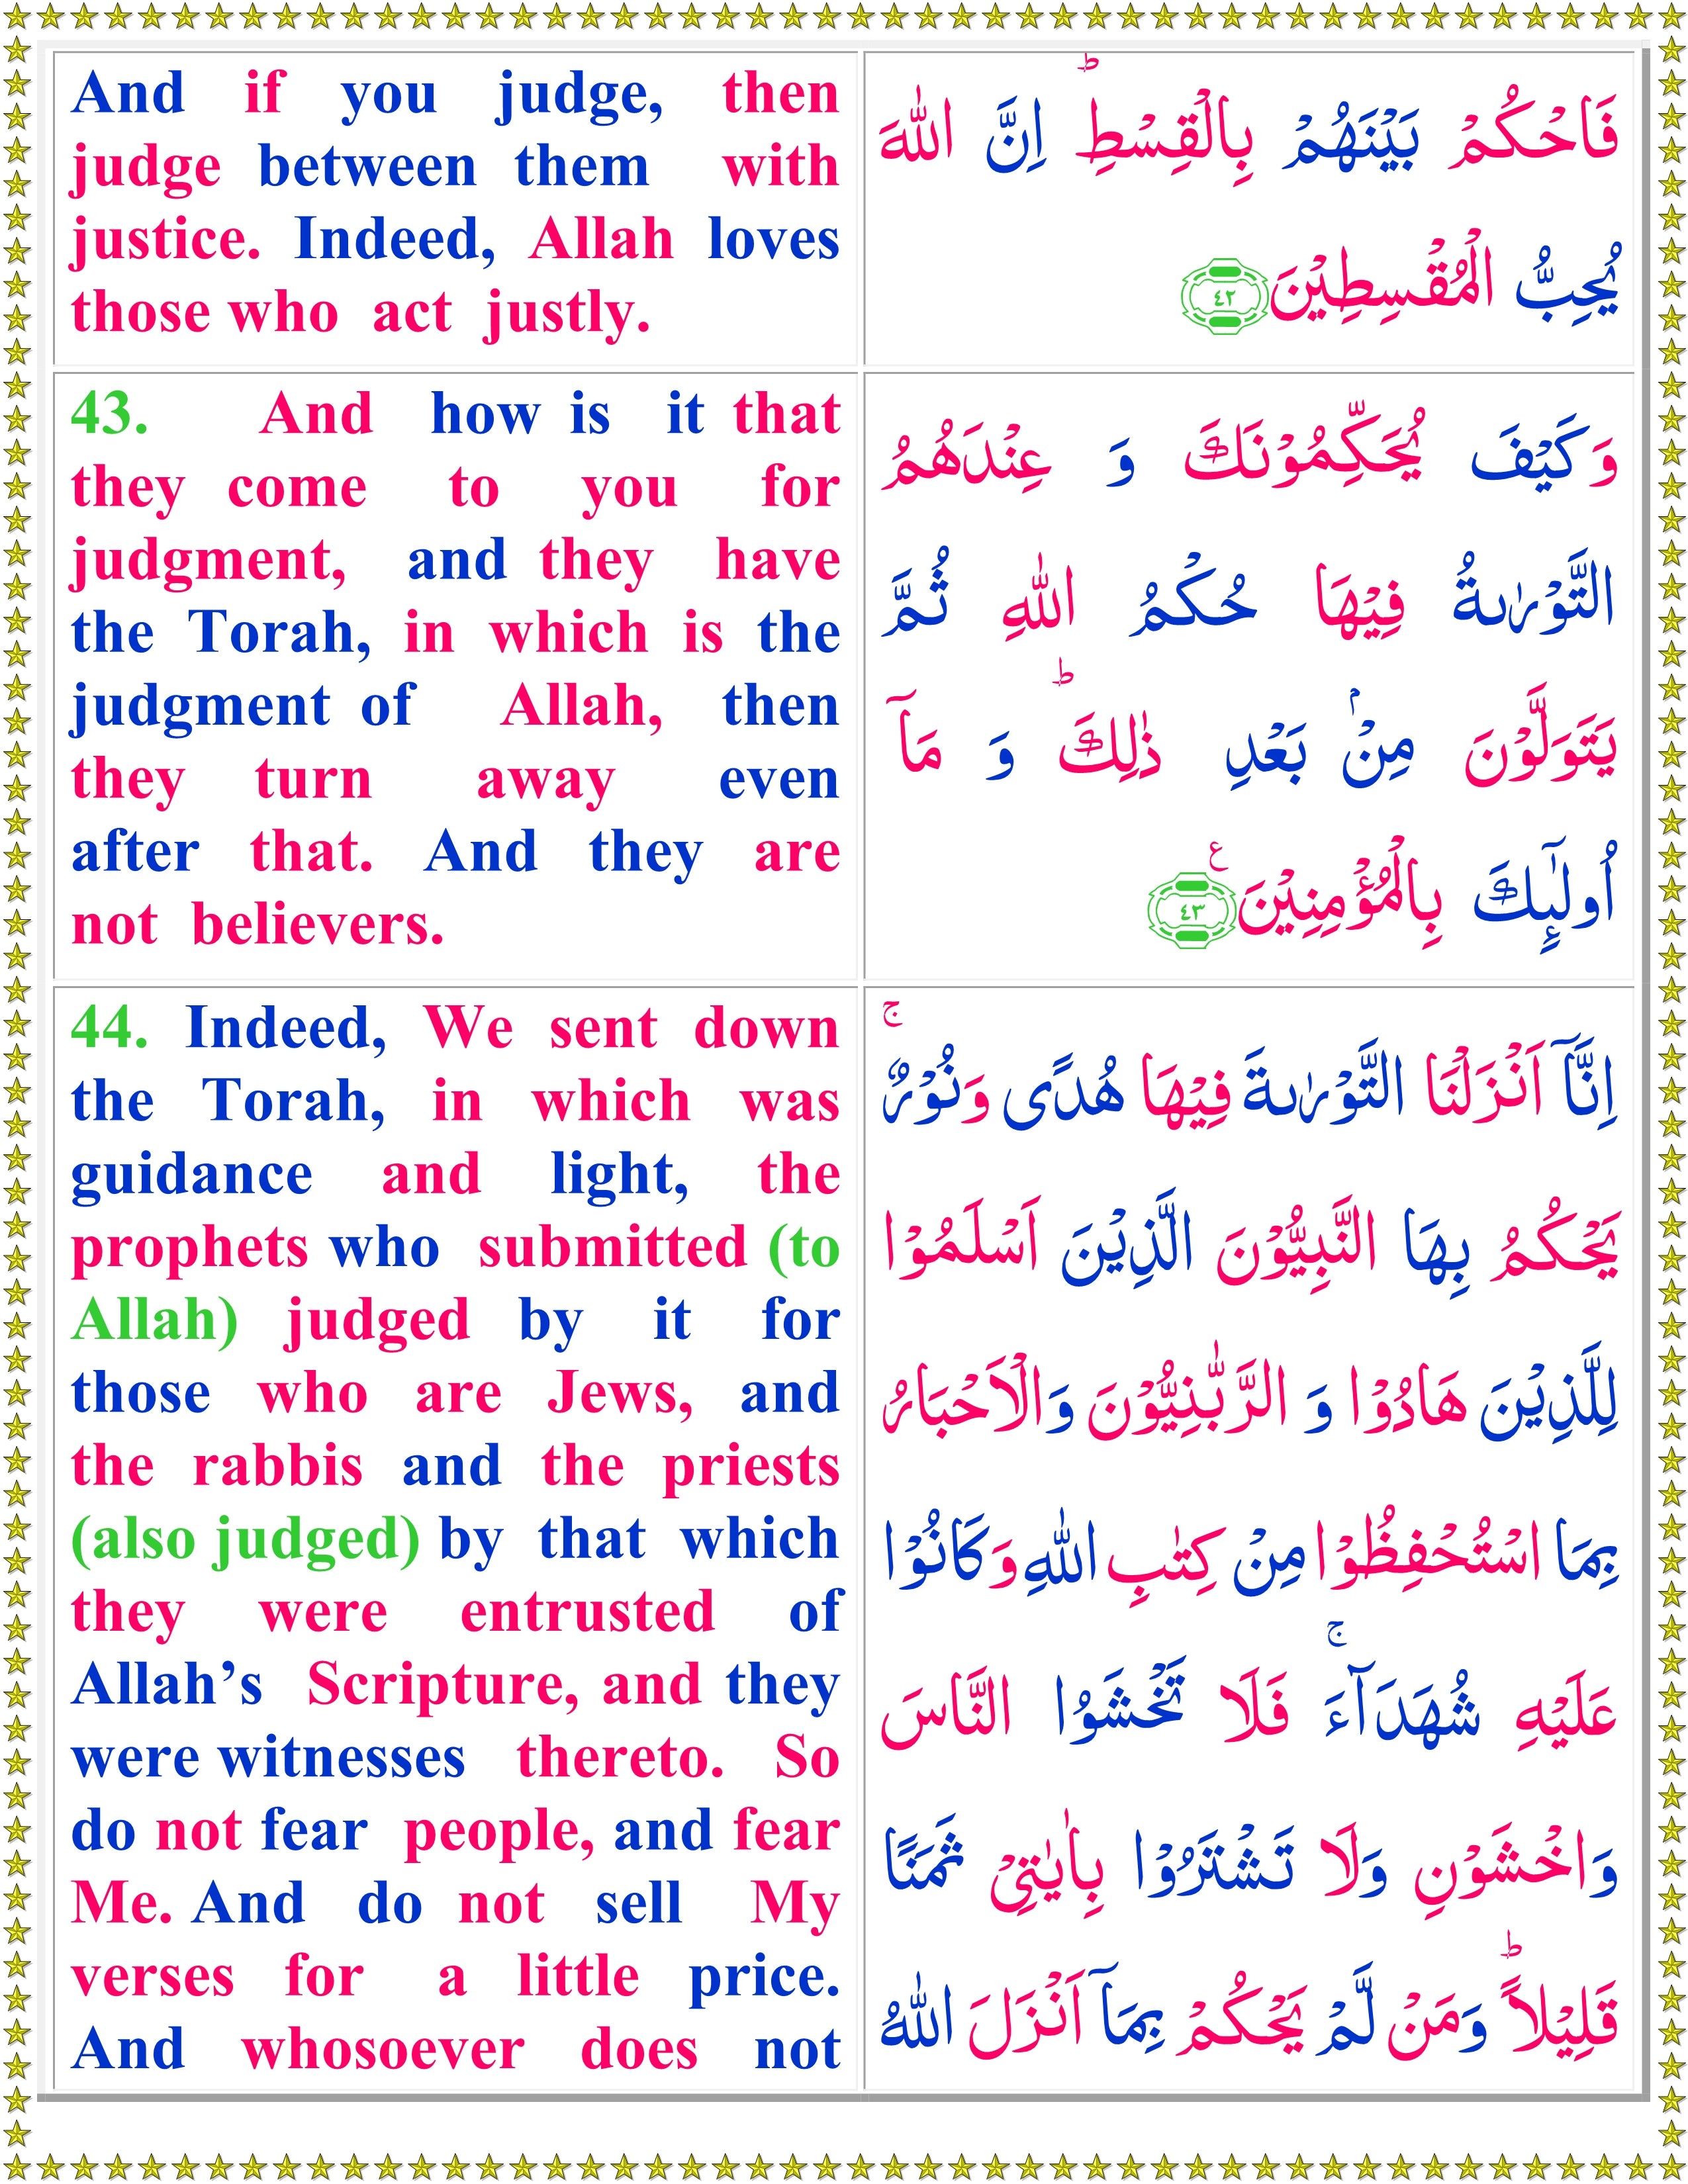 And if you judge, then
judge between them with
justice. Indeed, Allah loves
those who act justly.
فَاحْكُمْ بَيْنَهُمْ بِالْقِسْطِ ؕ اِنَّ اللّٰهَ
يُحِبُّ الْمُقْسِطِيْنَ ﴿٤٢﴾
43. And how is it that
they come to you for
judgment, and they have
the Torah, in which is the
judgment of Allah, then
they turn away even
after that. And they are
not believers.
وَكَيْفَ يُحَكِّمُوْنَكَ وَ عِنْدَهُمُ
التَّوْرٰىةُ فِيْهَا حُكْمُ اللّٰهِ ثُمَّ
يَتَوَلَّوْنَ مِنْۢ بَعْدِ ذٰلِكَ ؕ وَ مَاۤ
اُولٰٓىِٕكَ بِالْمُؤْمِنِيْنَ ﴿٤٣﴾ ع
44. Indeed, We sent down
the Torah, in which was
guidance and light, the
prophets who submitted (to
Allah) judged by it for
those who are Jews, and
the rabbis and the priests
(also judged) by that which
they were entrusted of
Allah’s Scripture, and they
were witnesses thereto. So
do not fear people, and fear
Me. And do not sell My
verses for a little price.
And whosoever does not
اِنَّاۤ اَنْزَلْنَا التَّوْرٰىةَ فِيْهَا هُدًى وَنُوْرٌ ۚ
يَحْكُمُ بِهَا النَّبِيُّوْنَ الَّذِيْنَ اَسْلَمُوْا
لِلَّذِيْنَ هَادُوْا وَ الرَّبّٰنِيُّوْنَ وَالْاَحْبَارُ
بِمَا اسْتُحْفِظُوْا مِنْ كِتٰبِ اللّٰهِ وَكَانُوْا
عَلَيْهِ شُهَدَآءَ ۚ فَلَا تَخْشَوُا النَّاسَ
وَاخْشَوْنِ وَلَا تَشْتَرُوْا بِاٰيٰتِيْ ثَمَنًا
قَلِيْلًا ؕ وَمَنْ لَّمْ يَحْكُمْ بِمَاۤ اَنْزَلَ اللّٰهُ